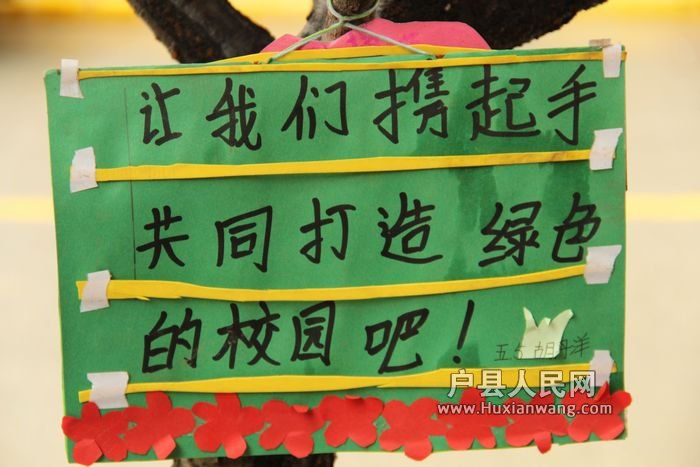 让我们携起手
共同打造绿色
的校园吧！
五 胡丹洋
户县人民网
www.Huxianwang.com